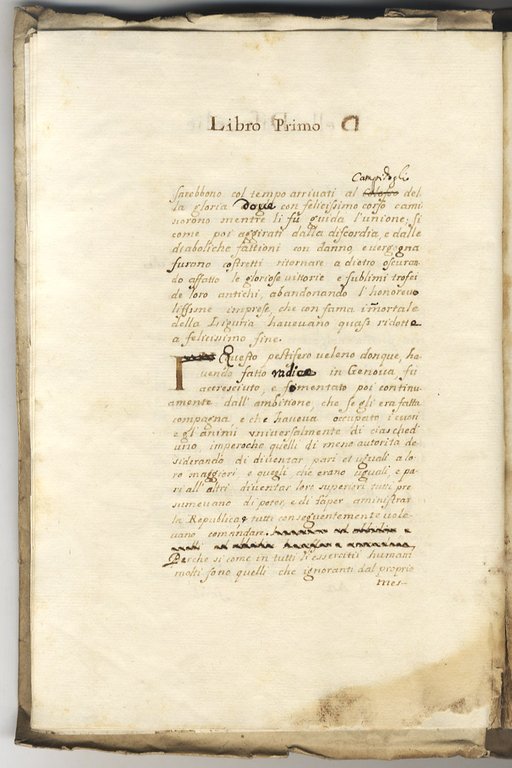 Libro Primo
Campidoglio
sarebbono col tempo arrivati al colosso del-
la gloria doue con felicissimo corso cami
norono mentre li fù guida l'unione, si
come poi aggirati dalla discordia, e dalle
diaboliche fattioni con danno e uergogna
furano costretti ritornare a dietro oscuran-
do affatto le gloriose uittorie e sublimi trofei
de loro antichi, abandonando l'honoreuo
lissime imprese, che con fama im̃ortale
della Liguria haueuano quasi ridotte
a felicissimo fine.
Questo pestifero ueleno donque, ha
uendo fatto radice in Genoua fu
accresciuto, e fomentato poi continu
amente dall'ambitione, che se gli era fatta
compagna e che haueua occupato i cuori
e gl'animi uniuersalmente di ciasched
uno, imperoche quelli di meno autorità de
siderando di diuentar pari et uguali a lo
ro maggiori e quegli che erano uguali e pa
ri all'altri diuentar loro superiori tutti pre
sumeuano di poter, e di saper aministrar
la Republica, e tutti conseguentemente uole
uano comandare.
Perche si come in tutti l'essercitii humani
molti sono quelli che ignoranti dal proprio
mes-